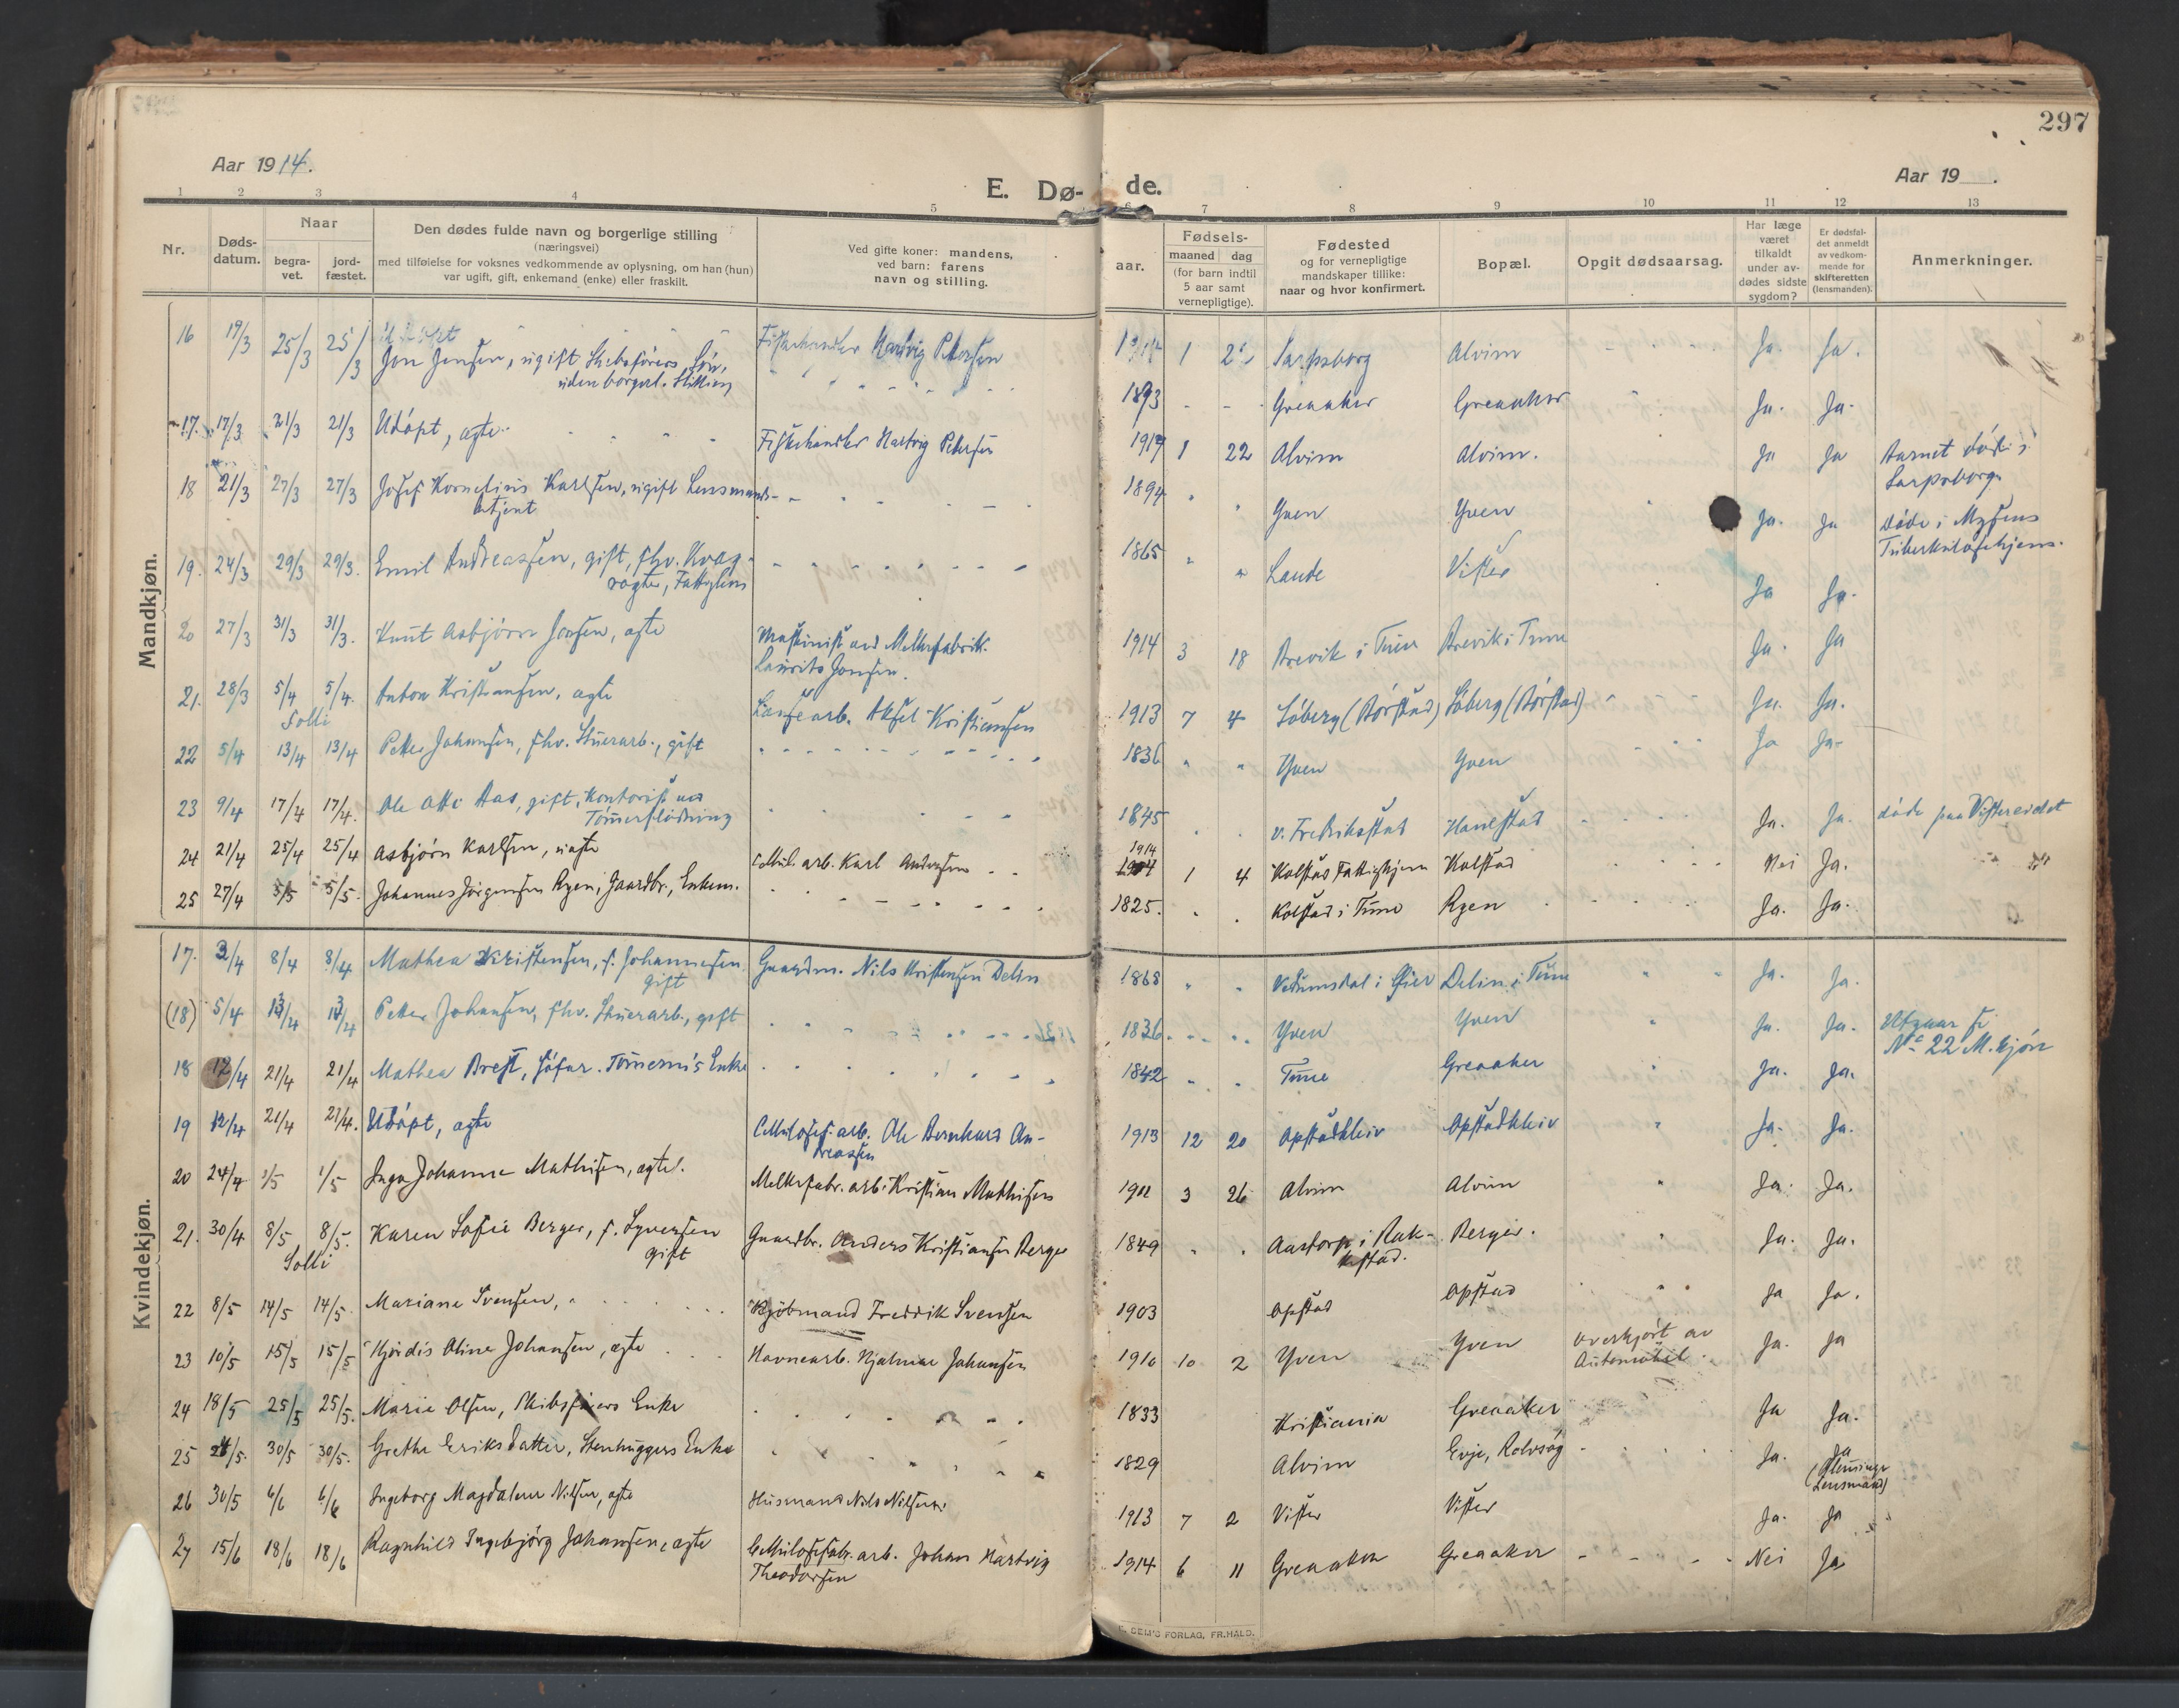 297
Aar 1914.
Aar 19
E. Dø- de.
1 2 3 4 5 6 7 8 9 10 11 12 13
Nr.
Døds-
datum.
Naar
begra-
vet.
jord-
fæstet.
Den dødes fulde navn og borgerlige stilling
(næringsvei)
med tilføielse for voksnes vedkommende av oplysning, om han (hun)
var ugift, gift, enkemand (enke) eller fraskilt.
Ved gifte koner: mandens,
ved barn: farens
navn og stilling.
aar.
Fødsels-
maaned dag
(for barn indtil
5 aar samt
vernepligtige).
Fødested
og for vernepligtige
mandskaper tillike:
naar og hvor konfirmert.
Bopæl.
Opgit dødsaarsag.
Har læge
været
tilkaldt
under av-
dødes sidste
sygdom?
Er dødsfal-
det anmeldt
av vedkom-
mende for
skifteretten
(lensmanden).
Anmerkninger.
Mandkjøn.
16 19/3 25/3 25/3 Udøpt Fiskehandler Hartvig Petersen 1914 1 Sarpsborg Alvim Ja. Ja.
Jon Jensen, ugift Skibsførers Søn,
uden borgerl. Stilling 1893 - - Greaaker Greaaker Ja. Ja.
17. 17/3 21/3 21/3 Udøpt, ægte Fiskehandler Hartvig Petersen 1914 1 22 Alvim Alvim. Ja Ja Barnet døde i
Sarpsborg
18 21/3 27/3 27/3 Josef Kornelius Karlsen, ugift Lensmands-
betjent 1894 Yven Yven Ja. Ja døde i Mysens
Tuberkulosehjem.
19. 24/3 29/3 29/3. Emil Andreassen, gift, fhv. Kvæg-
røgter, Fattiglem 1865 Lande Vister Ja Ja.
20 27/3 31/3 31/3. Knut Asbjørn Jonsen, ægte Maskinist ved Melkefabrik.
Laurits Jonsen. 1914 3 18 Brevik i Tune Brevik i Tune Ja. Ja
21. 28/3 5/4 5/4. Anton Kristiansen, ægte Løsearb. Aksel Kristiansen 1913 7 4 Løberg (Børstad) Løberg (Børstad) Ja. Ja.
Solli
22 5/4 13/4 13/4 Petter Johansen, fhv. Stuerarb., gift 1836 Yven Yven Ja Ja-
23 9/4 17/4 17/4. Ole Otto Aas, gift, Kontorist ved
Tømmerflødning 1845 v. Fredriksstad Hanestad Ja. Ja. døde paa Vistereidet
24 21/4 25/4 25/4 Asbjørn Karlsen, uægte Cellul. arb. Karl Andersen 1914 1 4 Kalstad Fattighjem Kalstad Nei Ja.
25 27/4 5/5 5/5. Johannes Jørgensen Ryen, Gaardbr., Enkem. 1825. Kolstad i Tune Ryen Ja. Ja.
Kvindekjøn.
17. 3/4 8/4 8/4 Mathea Kristensen, f. Johannesen.
gift Gaardm. Nils Kristensen Delin 1868 i Øier Delin i Tune Ja. Ja.
(18) 5/4 13/4 13/4 Petter Johansen, fhv. Stuerarb., gift 1836 Yven Yven Ja. Ja. Utgaar se
No 22 M.kjøn
18 12/4 21/4 21/4 Mathea Brest, Enke 1842 Tune Greaaker Ja. Ja.
19 12/4 21/4 21/4. Udøpt, ægte Cellulosef. arb. Ole Bernhard An-
dreassen 1913 12 20 Opstadkleiv Opstadkleiv Ja. Ja.
20 24/4 1/5 1/5 Inga Johanne Mathisen, ægte. Melkefabr. arb. Kristian Mathisen 3 26 Alvim Alvim Ja. Ja.
21. 30/4 8/5 8/5. Karen Sofie Berger, f. Syversen
gift Gaardbr. Anders Kristiansen Berger 1849 Aastorp i Rak-
kestad. Berger. Ja. Ja.
Solli
22 8/5 14/5 14/5. Mariane Svensen, Kjøbmand Fredrik Svensen 1903 Opstad Opstad Ja Ja.
23 10/5 15/5 15/5 Hjørdis Oline Johansen, ægte Havnearb. Hjalmar Johansen 1910 10 2 Yven Yven overkjørt av
Automobil. Ja. Ja
24 18/5 25/5 25/5. Marie Olsen, Skibsførers Enke 1833 Kristiania Greaaker Ja Ja.
25 24/5. 30/5 30/5. Grethe Eriksdatter, Stenhuggers Enke 1829 Alvim Evje, Rolvsøy Ja. Ja
(Glemminge
Lensmand)
26 30/5 6/6 6/6 Ingeborg Magdalene Nilsen, ægte Husmand Nils Nilsen. 1913 7 2 Vister Vister Ja. Ja
27 15/6 18/6 18/6 Ragnhild Ingebjørg Johansen, ægte Cellulosefabr. arb. Johan Hartvig
Theodorsen 1914 6 11 Greaaker Greaaker Nei Ja
SEM'S FORLAG, FR.HALD.